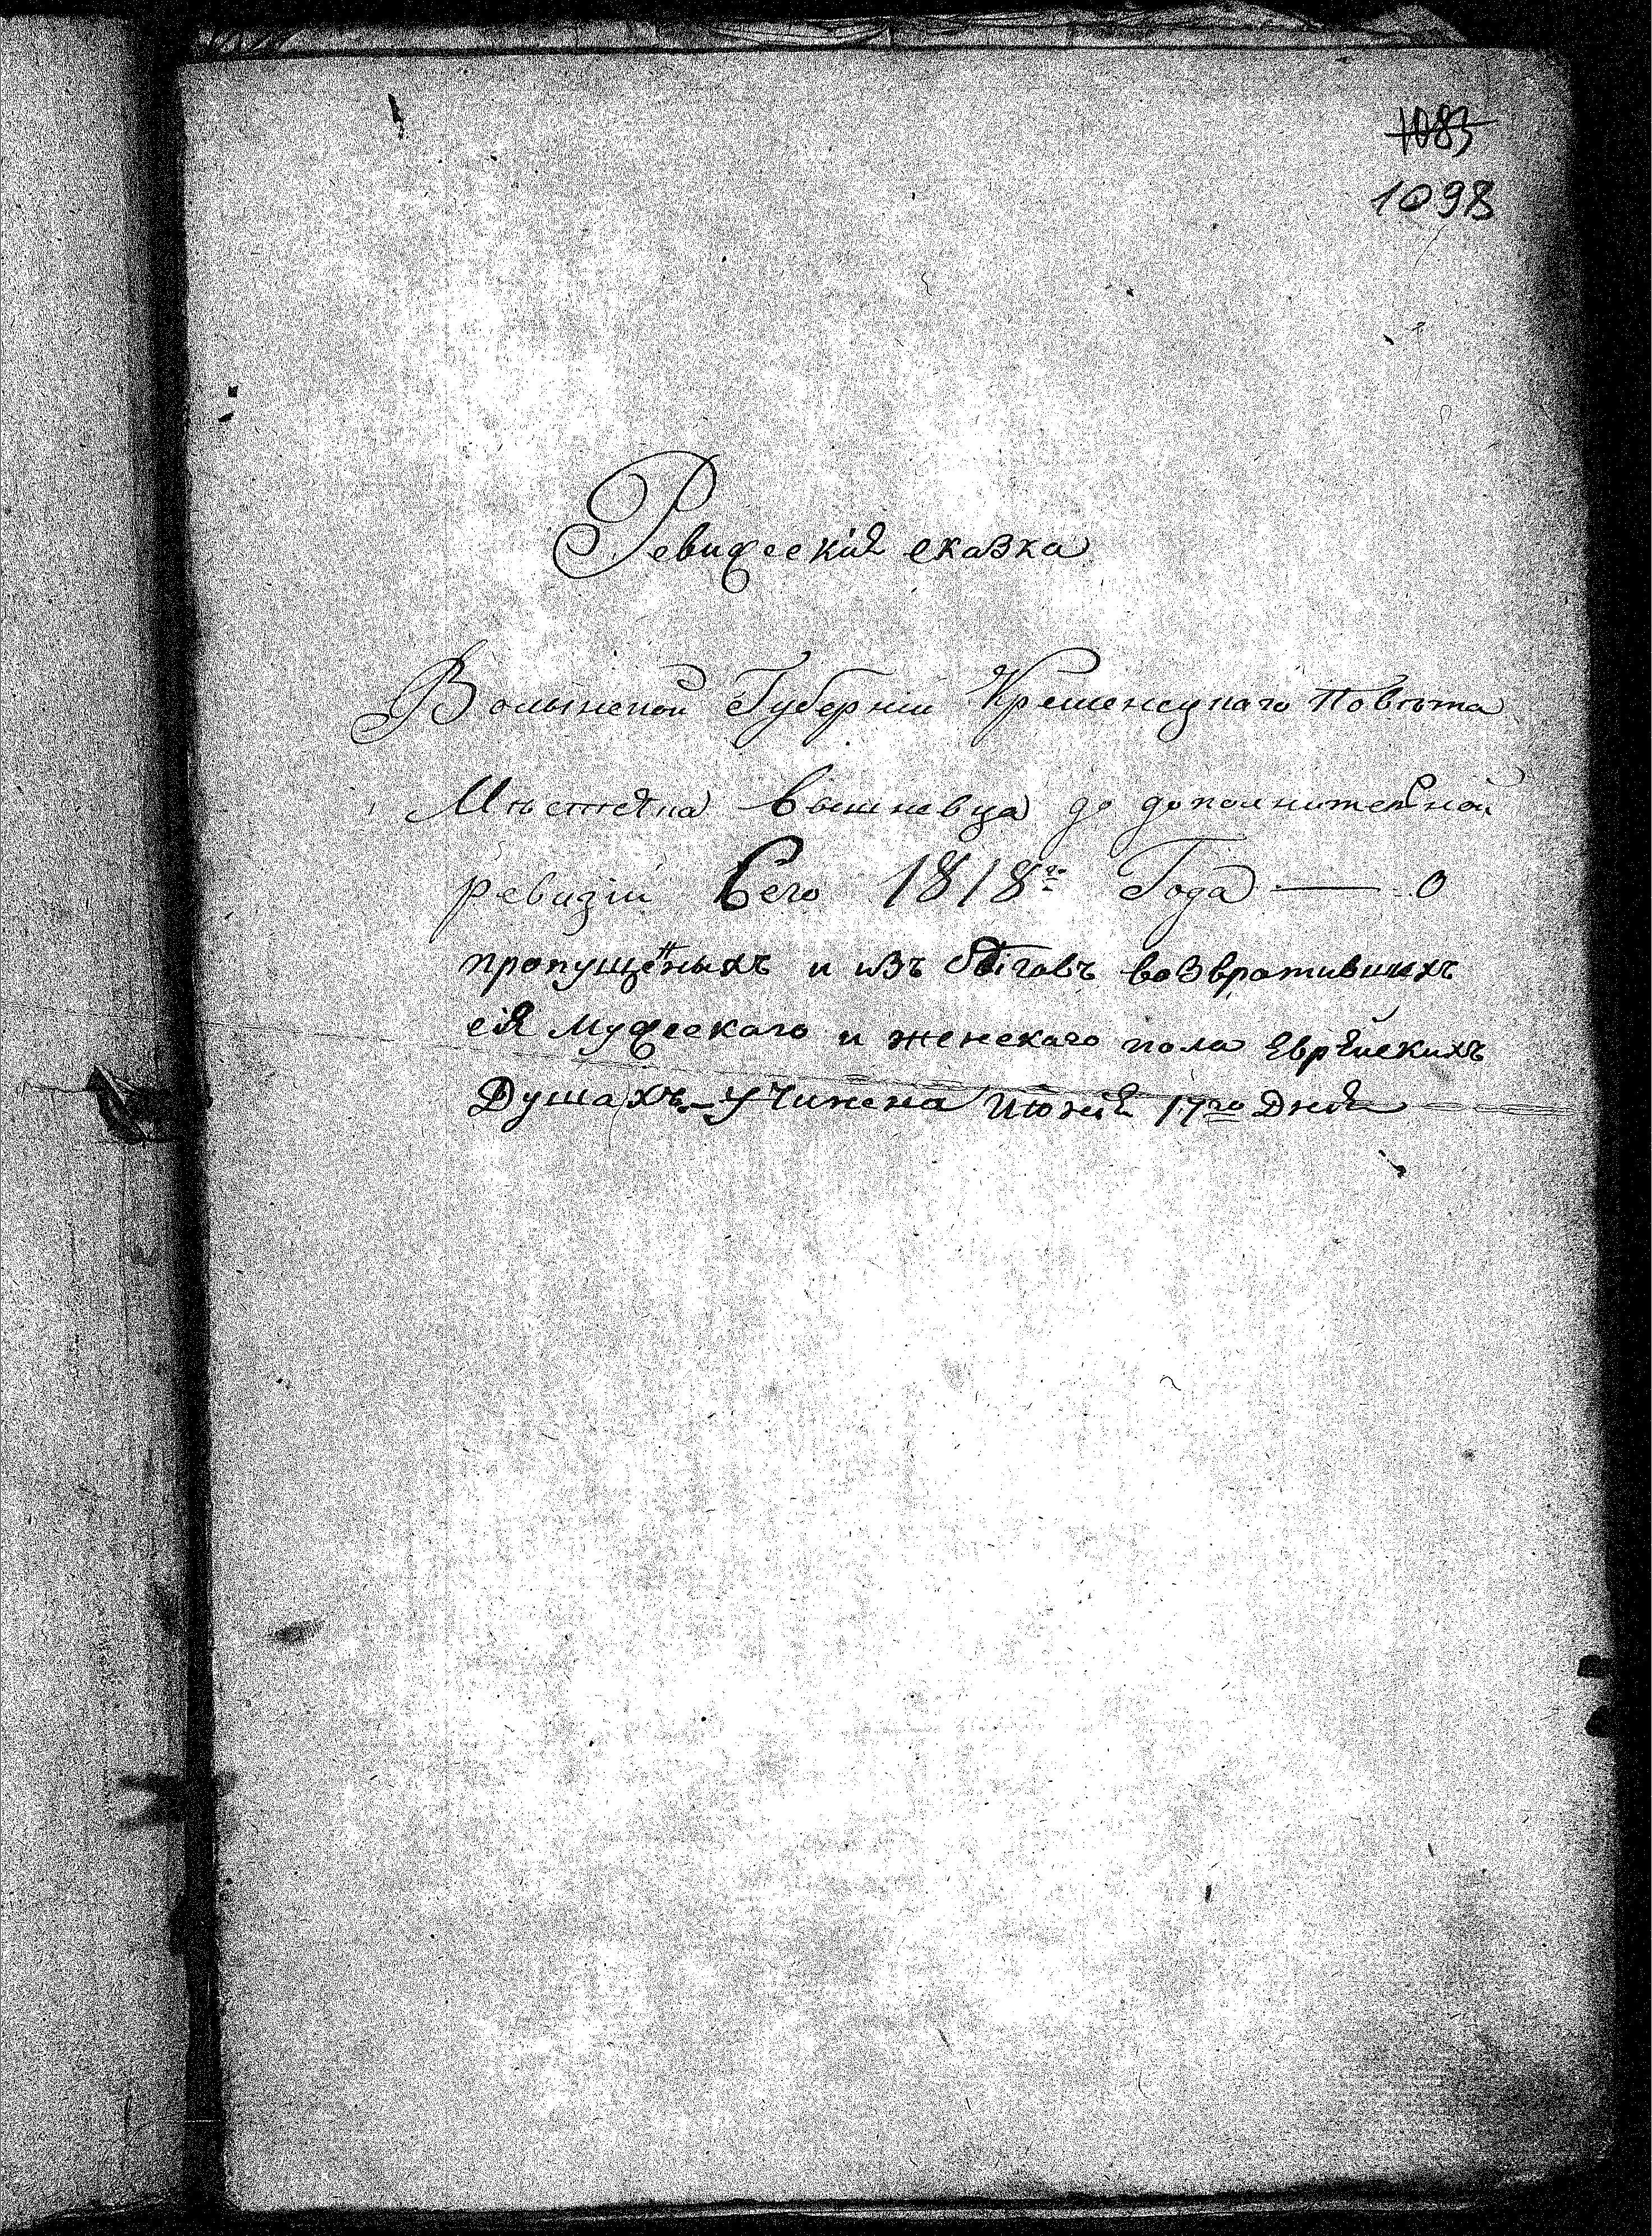 1083
1098
Ревизскія сказка
Волынской Губерніи Кременецкаго Повѣта
Мѣстечка Вышневца до дополнительной
ревизіи Сего 1818го Года — О
пропущенныхъ и изъ бѣговъ возвратившихъ
ся Мужескаго и женскаго пола Еврейскихъ
Душахъ – Учинена Июнія 17го Дня